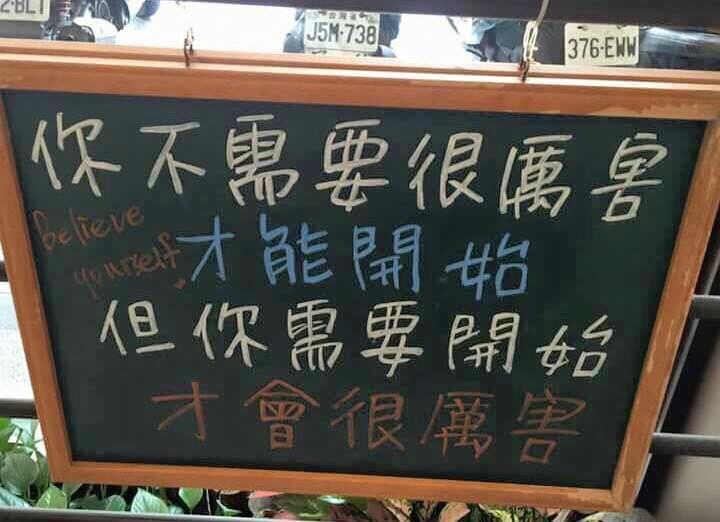 2-BLT
台灣省
J5M-738
376-EWW
你不需要很厲害
believe
yourself
才能開始
但你需要開始
才會很厲害